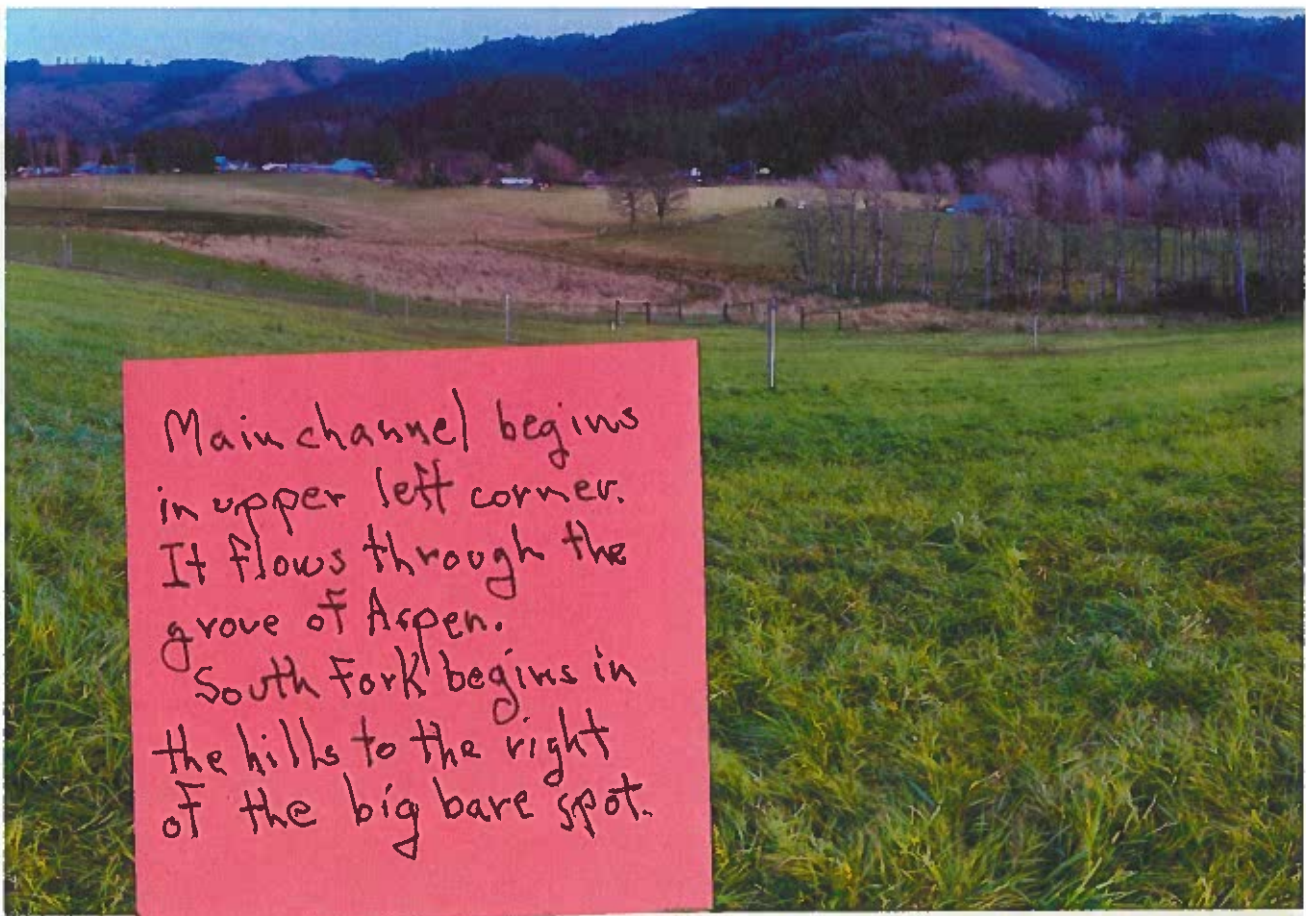 Main channel begins
in upper left corner.
It flows through the
grove of Aspen.
South Fork begins in
the hills to the right
of the big bare spot.